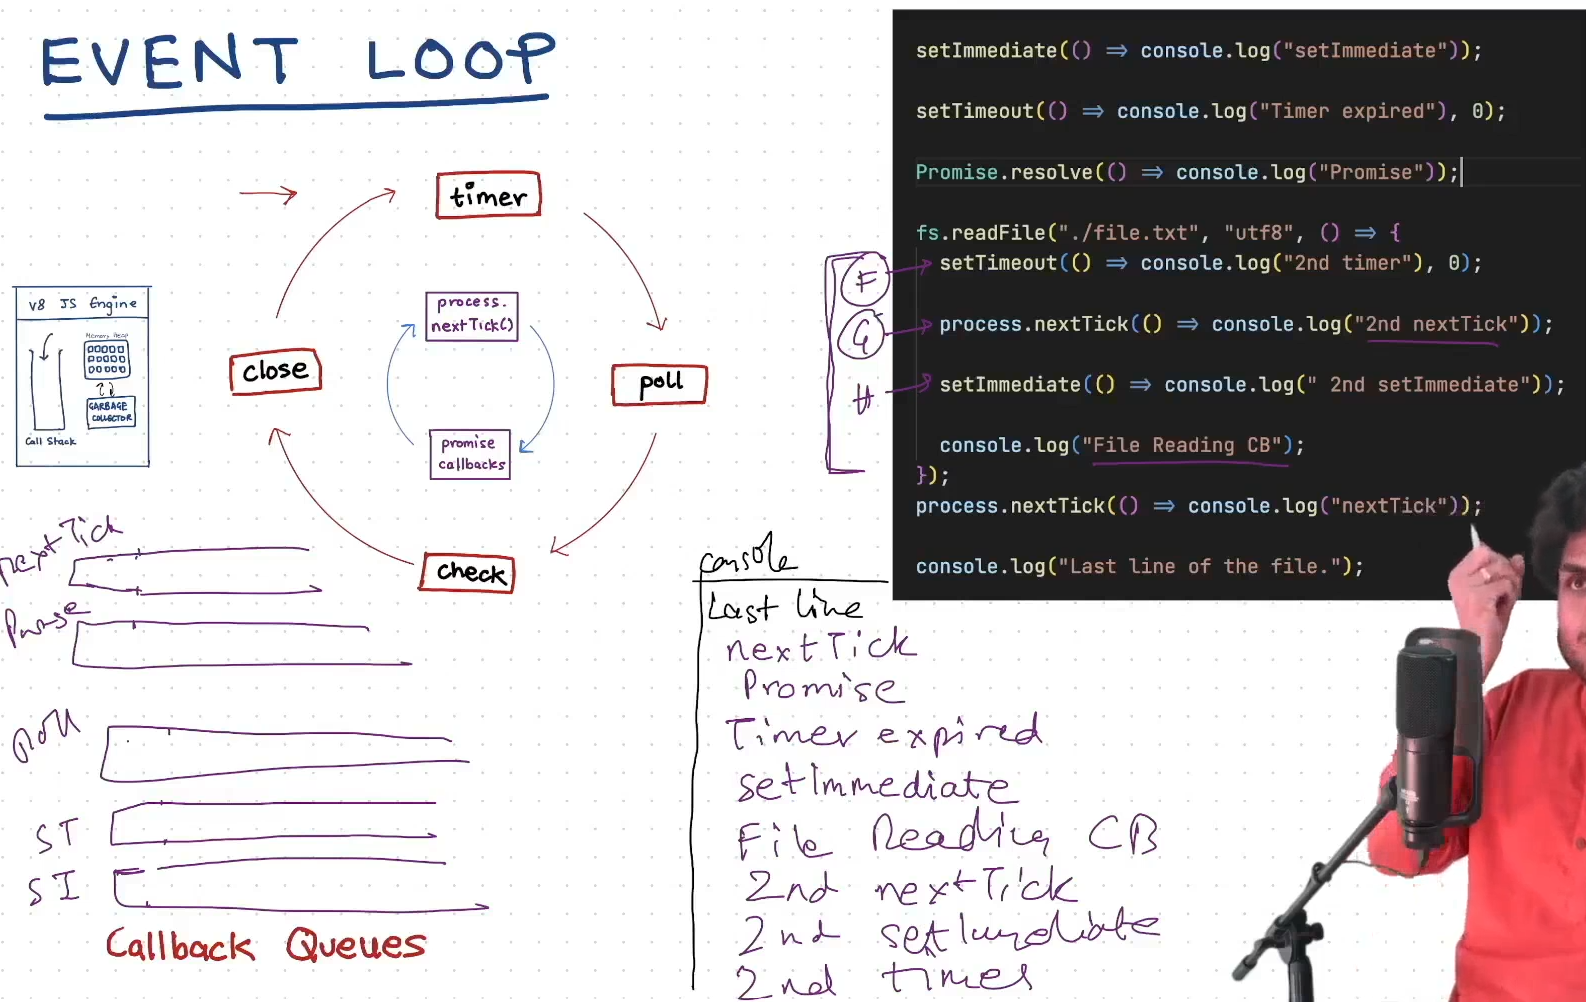 EVENT LOOP
timer
process.
nextTick()
poll
promise
callbacks
check
close
V8 JS Engine
Memory Heap
GARBAGE
COLLECTOR
Call Stack
nextTick
Poll
ST
SI
Callback Queues
setImmediate(() => console.log("setImmediate"));
setTimeout(() => console.log("Timer expired"), 0);
Promise.resolve(() => console.log("Promise"));
fs.readFile("./file.txt", "utf8", () => {
setTimeout(() => console.log("2nd timer"), 0);
process.nextTick(() => console.log("2nd nextTick"));
setImmediate(() => console.log(" 2nd setImmediate"));
console.log("File Reading CB");
});
process.nextTick(() => console.log("nextTick"));
console.log("Last line of the file.");
F
G
H
console
Last line
nextTick
Promise
Timer expired
setImmediate
File Reading CB
2nd nextTick
2nd setImmediate
2nd timer